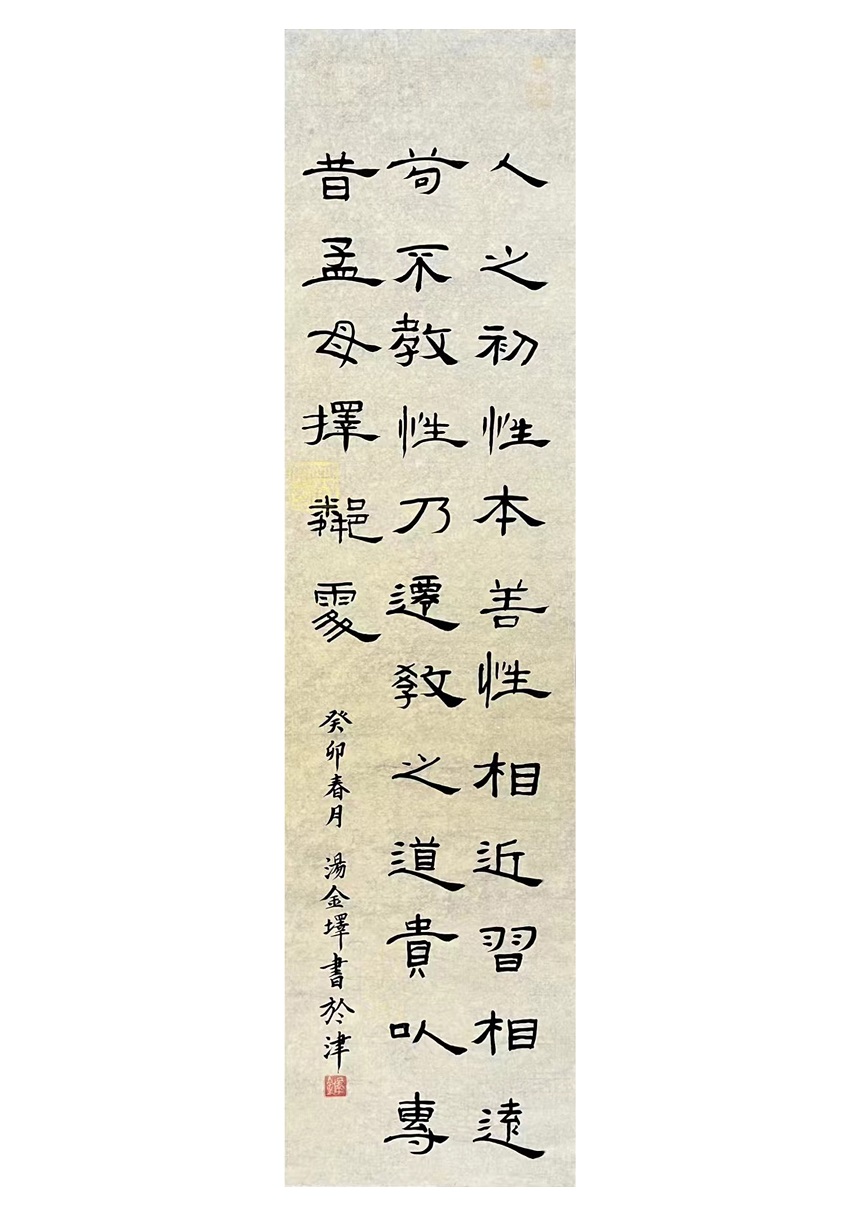 人之初性本善性相近習相遠
苟不教性乃遷教之道貴以專
昔孟母擇鄰處
癸卯春月 湯金墿書於津